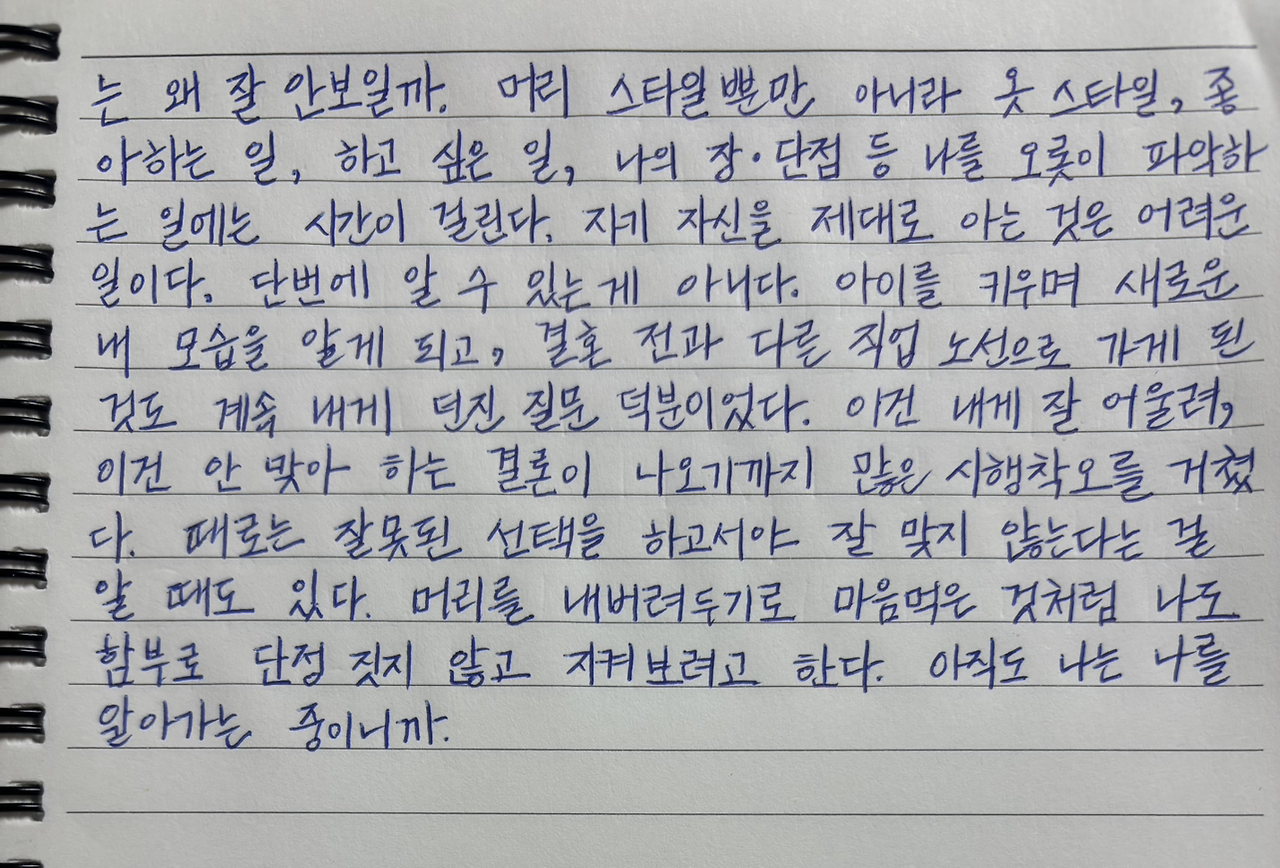 는 왜 잘 안보일까. 머리 스타일뿐만 아니라 옷 스타일, 좋
아하는 일, 하고 싶은 일, 나의 장·단점 등 나를 오롯이 파악하
는 일에는 시간이 걸린다. 자기 자신을 제대로 아는 것은 어려운
일이다. 단번에 알 수 있는게 아니다. 아이를 키우며 새로운
내 모습을 알게 되고, 결혼 전과 다른 직업 노선으로 가게 된
것도 계속 내게 던진 질문 덕분이었다. 이건 내게 잘 어울려,
이건 안 맞아 하는 결론이 나오기까지 많은 시행착오를 거쳤
다. 때로는 잘못된 선택을 하고서야 잘 맞지 않는다는 걸
알 때도 있다. 머리를 내버려두기로 마음먹은 것처럼 나도
함부로 단정 짓지 않고 지켜보려고 한다. 아직도 나는 나를
알아가는 중이니까.